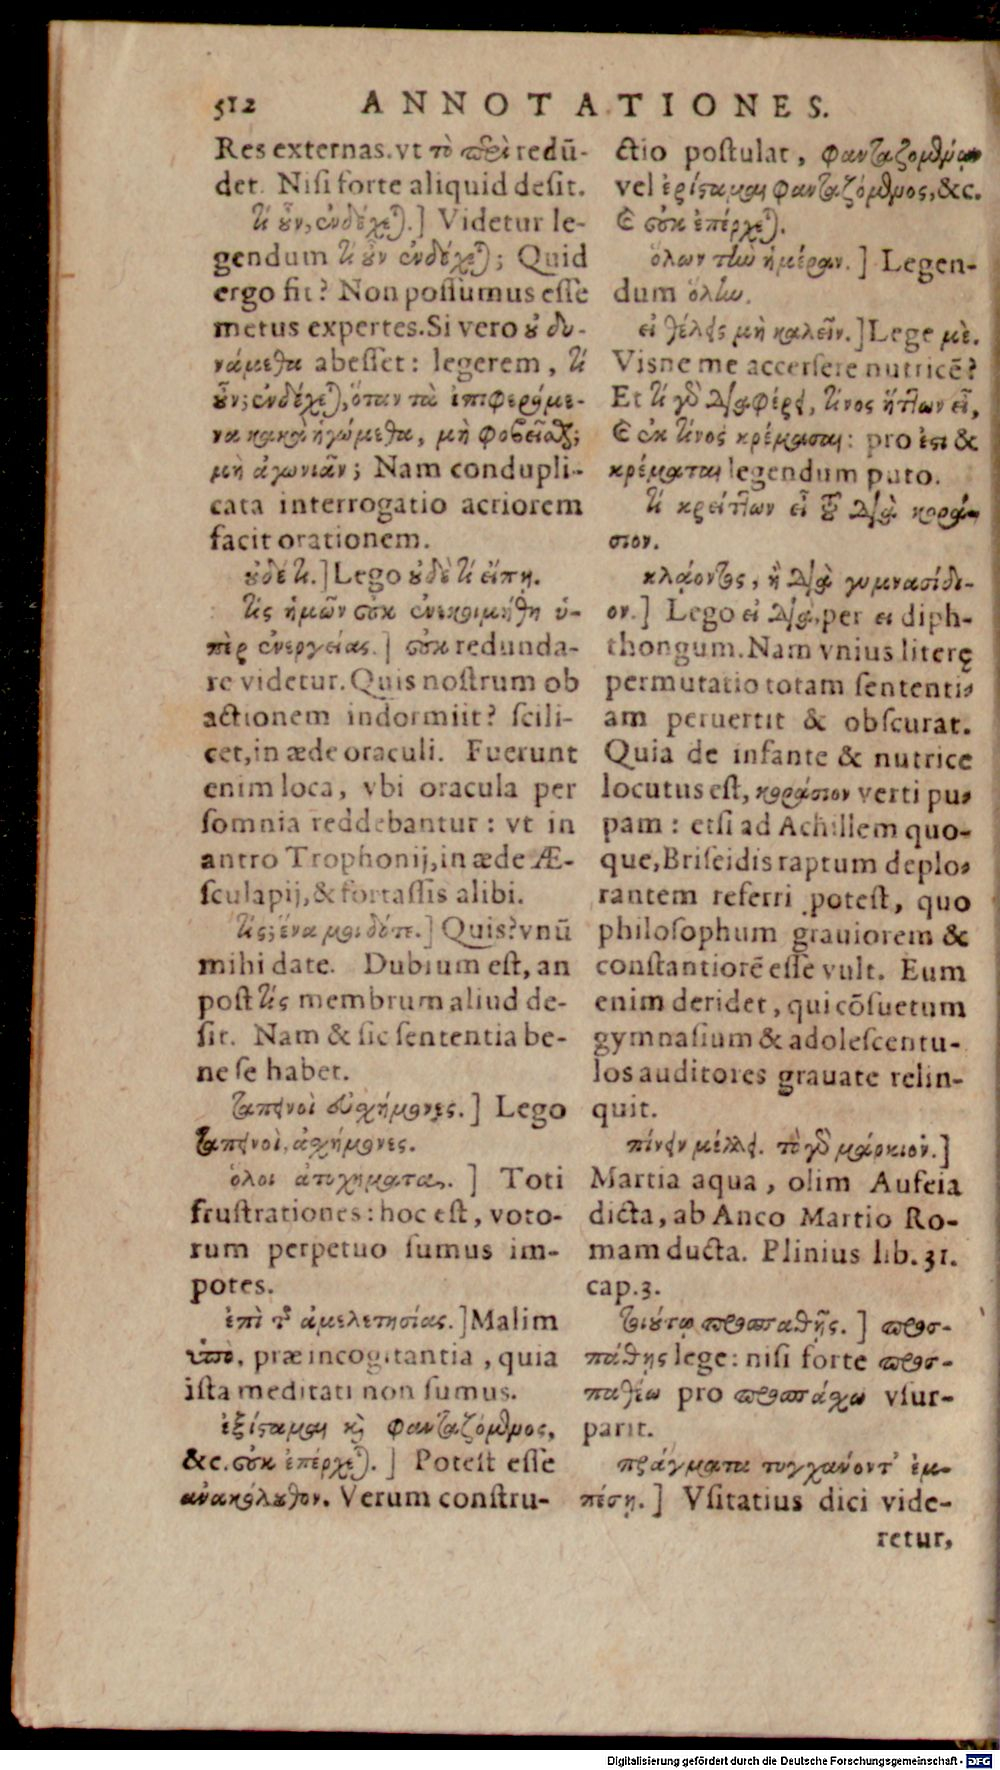 512 ANNOTATIONES.
Res externas. vt τὸ περὶ redū-
det. Nisi forte aliquid desit.
τί ȣ̓̃ν, ἐνδέχε).] Videtur le-
gendum τί ȣ̓̃ν ἐνδέχε); Quid
ergo fit? Non possumus esse
metus expertes. Si vero ȣ̓ δυ-
νάμεθα abesset: legerem, τί
ȣ̓̃ν; ἐνδέχε), ὅταν τὰ ἐπιφερόμε-
να κακὰ ἡγώμεθα, μὴ φοβεῖσθαι;
μὴ ἀγωνιᾶν; Nam condupli-
cata interrogatio acriorem
facit orationem.
ȣ̓δέ τι.] Lego ȣ̓δὲ τί εἴπῃ.
τίς ἡμῶν οὐκ ἐνεκοιμήθη ὑ-
πὲρ ἐνεργείας.] οὐκ redunda-
re videtur. Quis nostrum ob
actionem indormiit? scili-
cet, in æde oraculi. Fuerunt
enim loca, vbi oracula per
somnia reddebantur: vt in
antro Trophonij, in æde Æ-
sculapij, & fortassis alibi.
τίς; ἕνα μοι δότε.] Quis? vnū
mihi date. Dubium est, an
post τίς membrum aliud de-
sit. Nam & sic sententia be-
ne se habet.
ταπεινοὶ εὐσχήμονες.] Lego
ταπεινοὶ, ἀσχήμονες.
ὅλοι ἀτυχήματα.] Toti
frustrationes: hoc est, voto-
rum perpetuo sumus im-
potes.
ἐπὶ τ͂ ἀμελετησίας.] Malim
ὑπὸ, præ incogitantia, quia
ista meditati non sumus.
ἐξίσταμαι κỳ φανταζόμενος,
&c. οὐκ ἐπέρχε).] Potest esse
ἀνακόλȣθον. Verum constru-
ctio postulat, φανταζομένῳ
vel ἐξίσταμαι φανταζόμενος, &c.
ϗ οὐκ ἐπέρχε).
ὅλων τὴν ἡμέραν.] Legen-
dum ὅλην.
εἰ θέλεις μὴ καλεῖν.] Lege μὲ.
Visne me accersere nutricē?
Et τί γὰρ διαφέρει, τίνος ἥττων εἶ,
ϗ ἐκ τίνος κρέμασαι: pro ἐστι &
κρέμαται legendum puto.
τί κρείττων εἶ τȣ͂ διὰ κορά-
σιον.
κλάοντος, ἢ διὰ γυμνασίδι-
ον.] Lego εἰ διὰ, per ει diph-
thongum. Nam vnius literę
permutatio totam sententi-
am peruertit & obscurat.
Quia de infante & nutrice
locutus est, κοράσιον verti pu-
pam: etsi ad Achillem quo-
que, Briseidis raptum deplo-
rantem referri potest, quo
philosophum grauiorem &
constantiorē esse vult. Eum
enim deridet, qui cōsuetum
gymnasium & adolescentu-
los auditores grauate relin-
quit.
πίνειν μέλλει. τὸ γὰρ μάρκιον.]
Martia aqua, olim Aufeia
dicta, ab Anco Martio Ro-
mam ducta. Plinius lib. 31.
cap. 3.
τοιȣ́τῳ προσπαθῇς.] προσ-
πάθης lege: nisi forte προσ-
παθέω pro προσπάσχω vsur-
parit.
πράγματα τυγχάνοντ᾽ ἐμ-
πέσῃ.] Vsitatius dici vide-
retur,
Digitalisierung gefördert durch die Deutsche Forschungsgemeinschaft - DFG